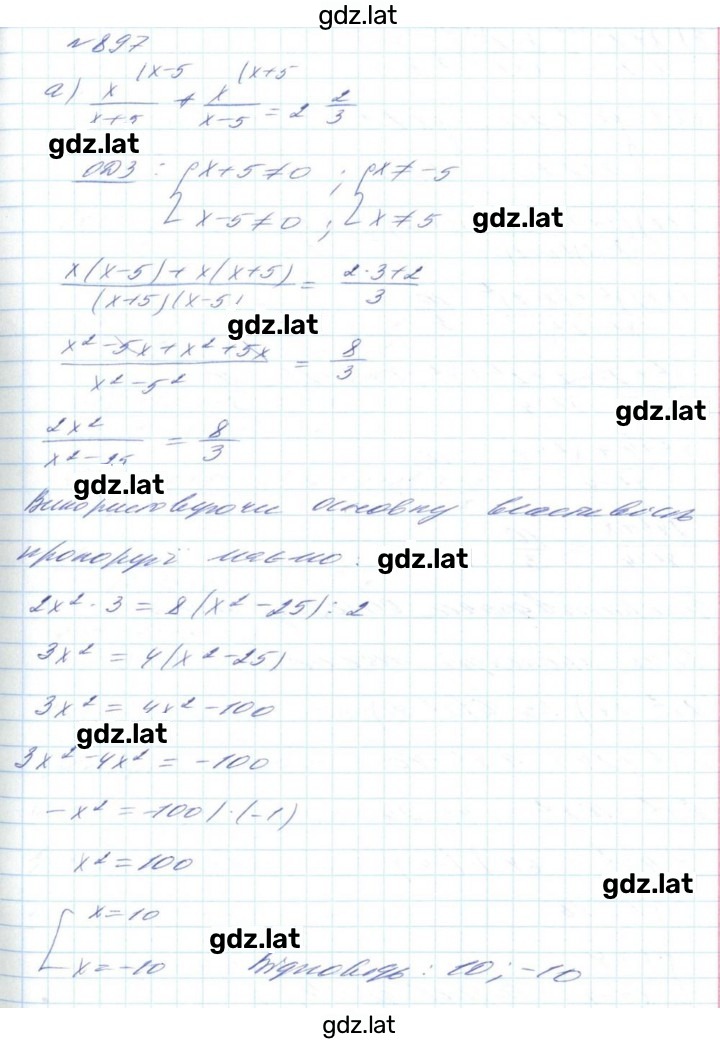 gdz.lat
№897
а) x/(x+5) (x-5 + x/(x-5) (x+5 = 2 2/3
gdz.lat
ОДЗ: { x+5≠0 ; { x≠-5
{ x-5≠0 ; { x≠5 gdz.lat
(x(x-5)+x(x+5))/((x+5)(x-5) = (2·3+2)/3
gdz.lat
(x²-5x+x²+5x)/(x²-5²) = 8/3
gdz.lat
2x²/(x²-25) = 8/3
gdz.lat
Використовуючи основну властивість
пропорції маємо: gdz.lat
2x²·3 = 8(x²-25) : 2
3x² = 4(x²-25)
3x² = 4x²-100
gdz.lat
3x²-4x² = -100
-x² = -100 /·(-1)
x² = 100
gdz.lat
[ x=10
gdz.lat
[ x=-10 Відповідь: 10; -10
gdz.lat